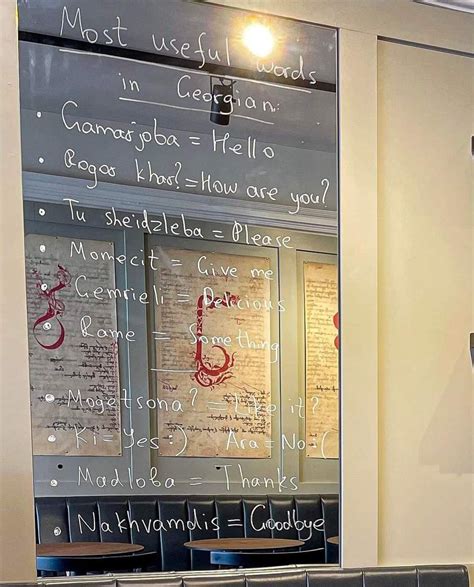 Most useful words
in Georgian:
• Gamarjoba = Hello
• Rogor khar? = How are you?
• Tu sheidzleba = Please
• Momecit = Give me
• Gemrieli = Delicious
• Rame = Something
• Mogetsona? = Like it?
• Ki = Yes :) Ara = No :(
• Madloba = Thanks
• Nakhvamdis = Goodbye